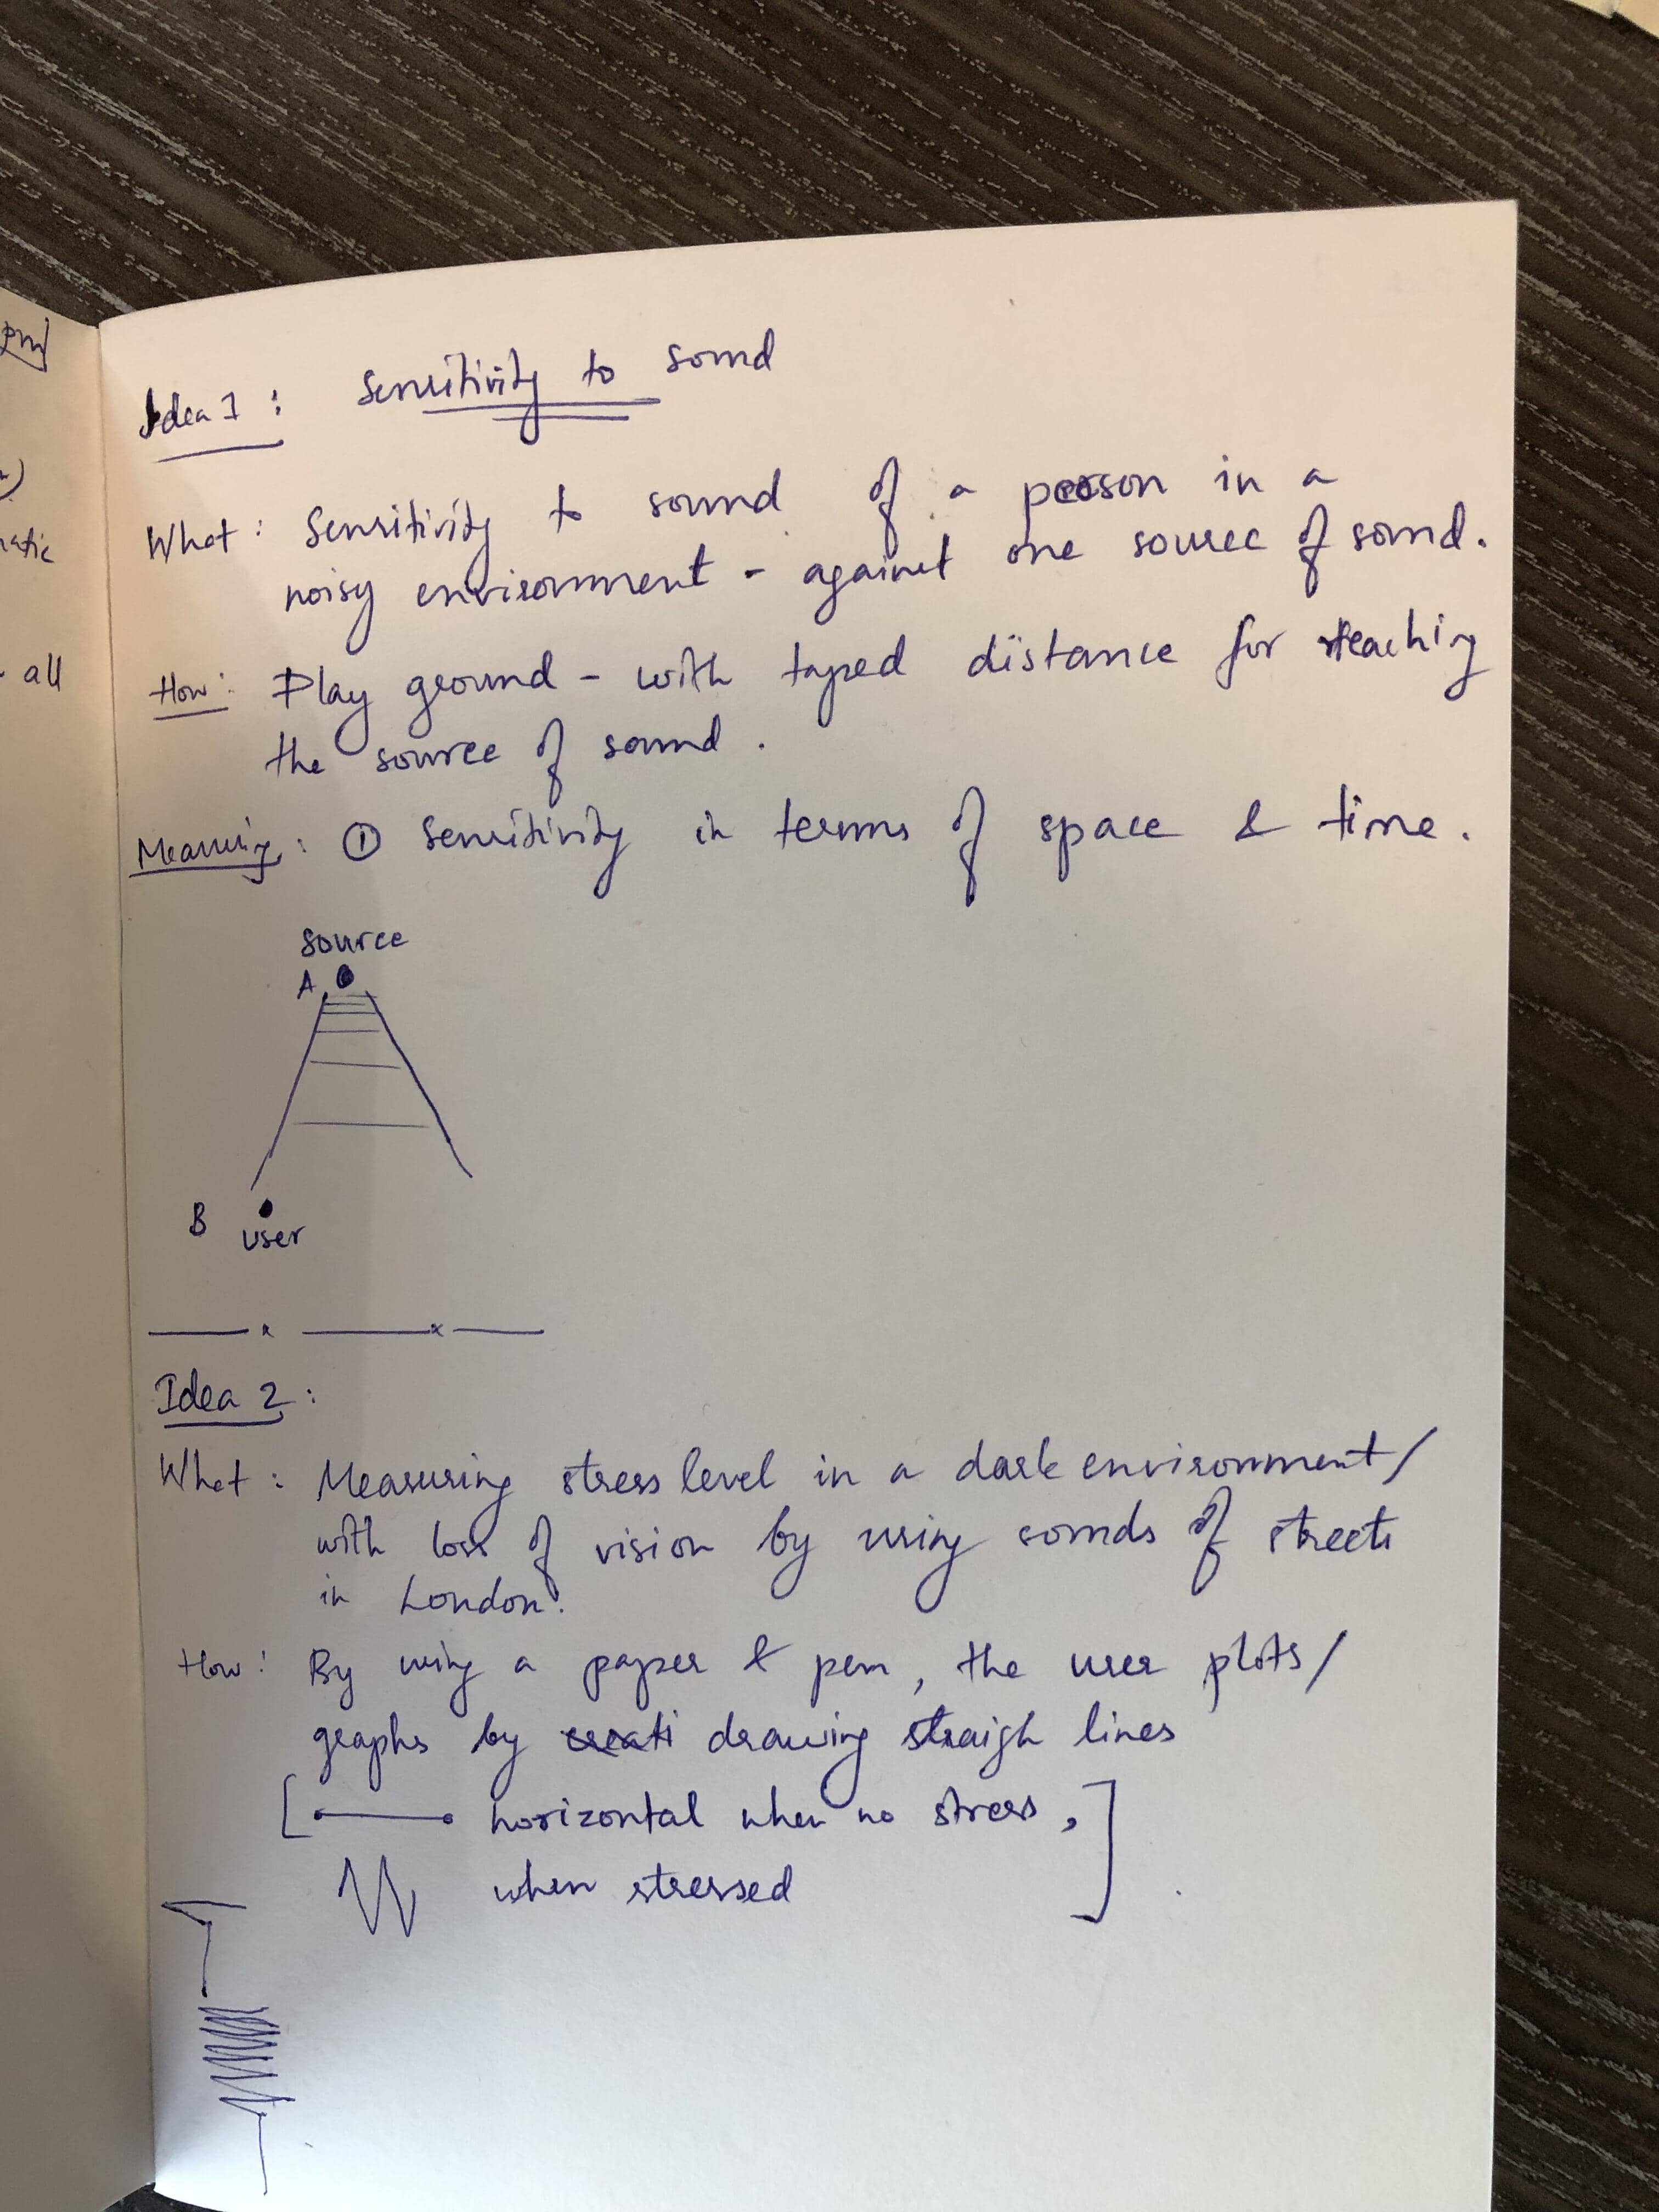 pm
atic
all
Idea 1 : Sensitivity to sound
What : Sensitivity to sound of a person in a
noisy environment - against one source of sound.
How : Play ground - with taped distance for reaching
the source of sound .
Meaning : ① Sensitivity in terms of space & time .
source
A
B
user
Idea 2 :
What : Measuring stress level in a dark environment/
with loss of vision by using sounds of streets
in London.
How : By using a paper & pen , the user plots/
graphs by creati drawing straigh lines
[ horizontal when no stress , ]
when stressed